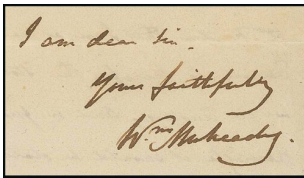 I am dear Sir.
Your faithfully
Wm Mulready.